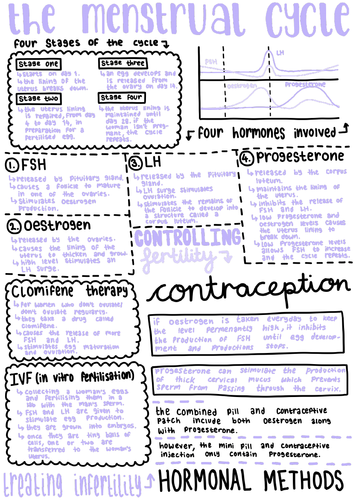 the menstrual cycle
four stages of the cycle
Stage one
starts on day 1.
the lining of the
uterus breaks down.
Stage three
an egg develops and
is released from
the ovary on day 14.
Stage two
the uterus lining
is repaired, from day
4 to day 14, in
preparation for a
fertilised egg.
Stage four
the uterus lining is
maintained until
day 28. if the
woman isn't
the cycle
repeats.
FSH
LH
oestrogen
Progesterone
four hormones involved
1. FSH
released by pituitary gland.
causes a follicle to mature
in one of the ovaries.
stimulates oestrogen
production.
2. Oestrogen
released by the ovaries.
causes the lining of the
uterus to thicken and grow.
high level stimulates an
LH surge.
3. LH
released by the pituitary
gland.
LH surge stimulates
ovulation.
stimulates the remains of
the follicle to develop into
a structure called a
corpus luteum.
4. Progesterone
released by the corpus
luteum.
maintains the lining of
the uterus.
inhibits the release of
FSH and LH.
low progesterone and
oestrogen levels causes
the uterus lining to
break down.
low progesterone levels
allows FSH to increase
and the cycle repeats.
CONTROLLING
fertility
Clomifene therapy
for women who don't ovulate/
don't ovulate regularly.
they take a drug called
clomifene.
causes the release of more
FSH and LH.
stimulates egg maturation
and ovulation.
IVF (in vitro fertilisation)
collecting a woman's eggs
and fertilising them in a
lab with the man's sperm.
FSH and LH are given to
stimulate egg production.
they are grown into embryos.
once they are tiny balls of
cells, one or two are
transferred to the woman's
uterus.
treating infertility
contraception
if oestrogen is taken everyday to keep
the level permanently high, it inhibits
the production of FSH until egg develop-
ment and productions stops.
Progesterone can stimulate the production
of thick cervical mucus which prevents
sperm from passing through the cervix.
the combined pill and contraceptive
patch include both oestrogen along
with progesterone.
however, the mini pill and contraceptive
injection only contain progesterone.
HORMONAL METHODS